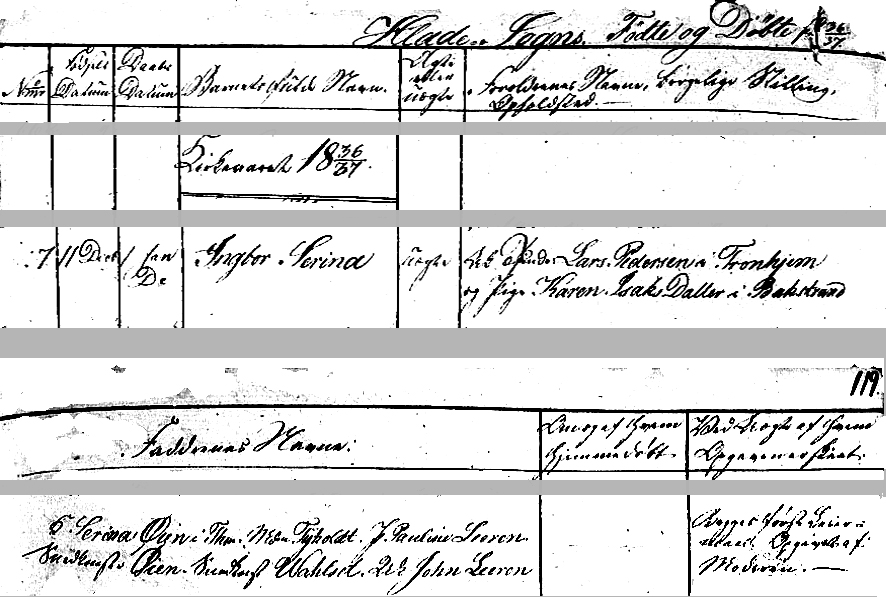 Hlade Sogns. Fødte og Døbte 36/37
Num
Fødsels Datum
Daabs Datum
Barnets fulde Navn.
Ægte eller uægte
Forældrenes Navne, borgelige Stilling,
Opholdsted.
Kirkeaaret 1836/37.
7 11 Dec 1 Jan Ingbor Serina uægte Lars Pedersen i Tronhjem
og Pige Karen Isaks Datter i Bakstrand
119.
Faddernes Navne:
Om og af hvem
hjemmedøbt.
Ved uægte af hvem
Opgivenen skeet.
Serina Øyn i Thm. Tyholdt. J. Pauline Leeren
Øien. Wahlsel. John Leeren
Begges første Leier-
maal. Opgivet af
Moderen.